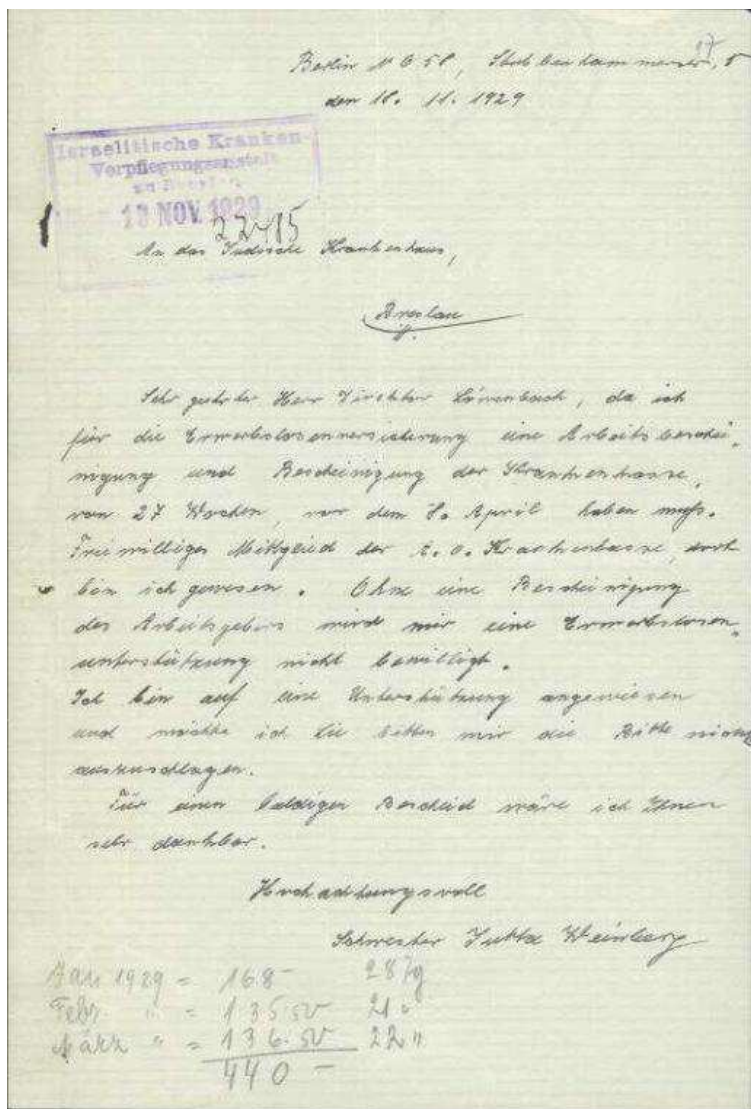 17
Berlin N O 58, Stubbenkammerstr, 5
den 18. 11. 1929
Israelitische Kranken-
Verpflegungsanstalt
zu Breslau
13 NOV. 1929
22485
An das Jüdische Krankenhaus,
Breslau
Sehr geehrter Herr Direktor Löwenbach, da ich
für die Erwerbslosenversicherung eine Arbeitsbeschei-
nigung und Bescheinigung der Krankenkasse,
von 27 Wochen, vor dem 8. April haben muß.
Freiwilliges Mittglied der A. O. Krankenkasse, dort
bin ich gewesen. Ohne eine Bescheinigung
des Arbeitsgebers wird mir eine Erwerbslosen-
unterstützung nicht bewilligt.
Ich bin auf eine Unterstützung angewiesen
und möchte ich Sie bitten mir die Bitte nicht
auszuschlagen.
Für einen baldigen Bescheid wäre ich Ihnen
sehr dankbar.
Hochachtungsvoll
Schwester Jutta Weinberg
Jan 1929 = 168- 28 Tg
Febr " = 135.50 21 "
März " = 136.50 22 "
440 -